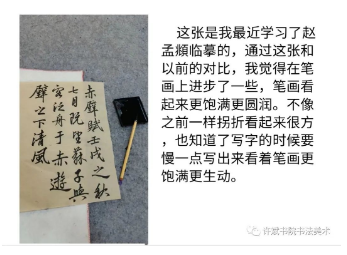 赤壁賦壬戌之秋
七月既望蘇子與
客泛舟于赤壁
之下清風
这张是我最近学习了赵
孟頫临摹的，通过这张和
以前的对比，我觉得在笔
画上进步了一些，笔画看
起来更饱满更圆润。不像
之前一样拐折看起来很方
，也知道了写字的时候要
慢一点写出来看着笔画更
饱满更生动。
许斌书院书法美术